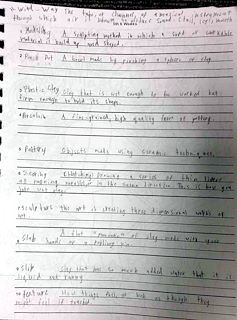 • Wind-Way The type of channel of a musical instrument
through which air is blown to produce sound (tail, legs, mouth
• Modeling A sculpting method in which a soft or workable
material is built up and shaped.
• Pinch Pot A bowl made by pinching a sphere of clay.
• Plastic clay clay that is wet enough to be worked but
firm enough to hold its shape.
• Porcelain A fine-grained, high quality form of pottery.
• Pottery Objects made using ceramic techniques.
• Scoring drawing a series of thin lines
running parallel in the same direction. This is
• sculpture this art is creating three dimensional works of
art
• Slab A flat of clay made with your
hands or a rolling pin.
• slip clay that has so much added water that it is
liquid and runny
• texture How things feel, or look as though they
might feel if touched